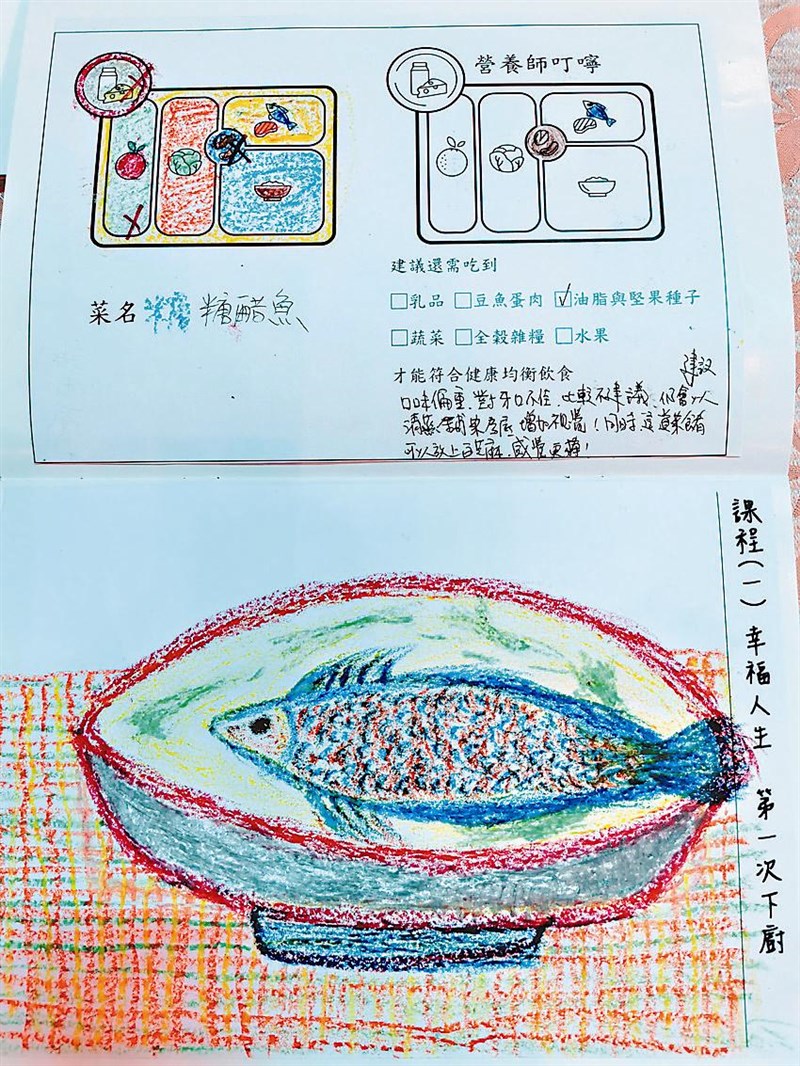 營養師叮嚀
建議還需吃到
□乳品 □豆魚蛋肉 ☑油脂與堅果種子
□蔬菜 □全穀雜糧 □水果
菜名 糖醋魚
才能符合健康均衡飲食
建議
口味偏重，對牙口不佳，比較不建議，仍會以
清蒸 增加視覺！同時這道菜餚
可以放上白芝麻，感覺更棒！
課程(一) 幸福人生 第一次下廚